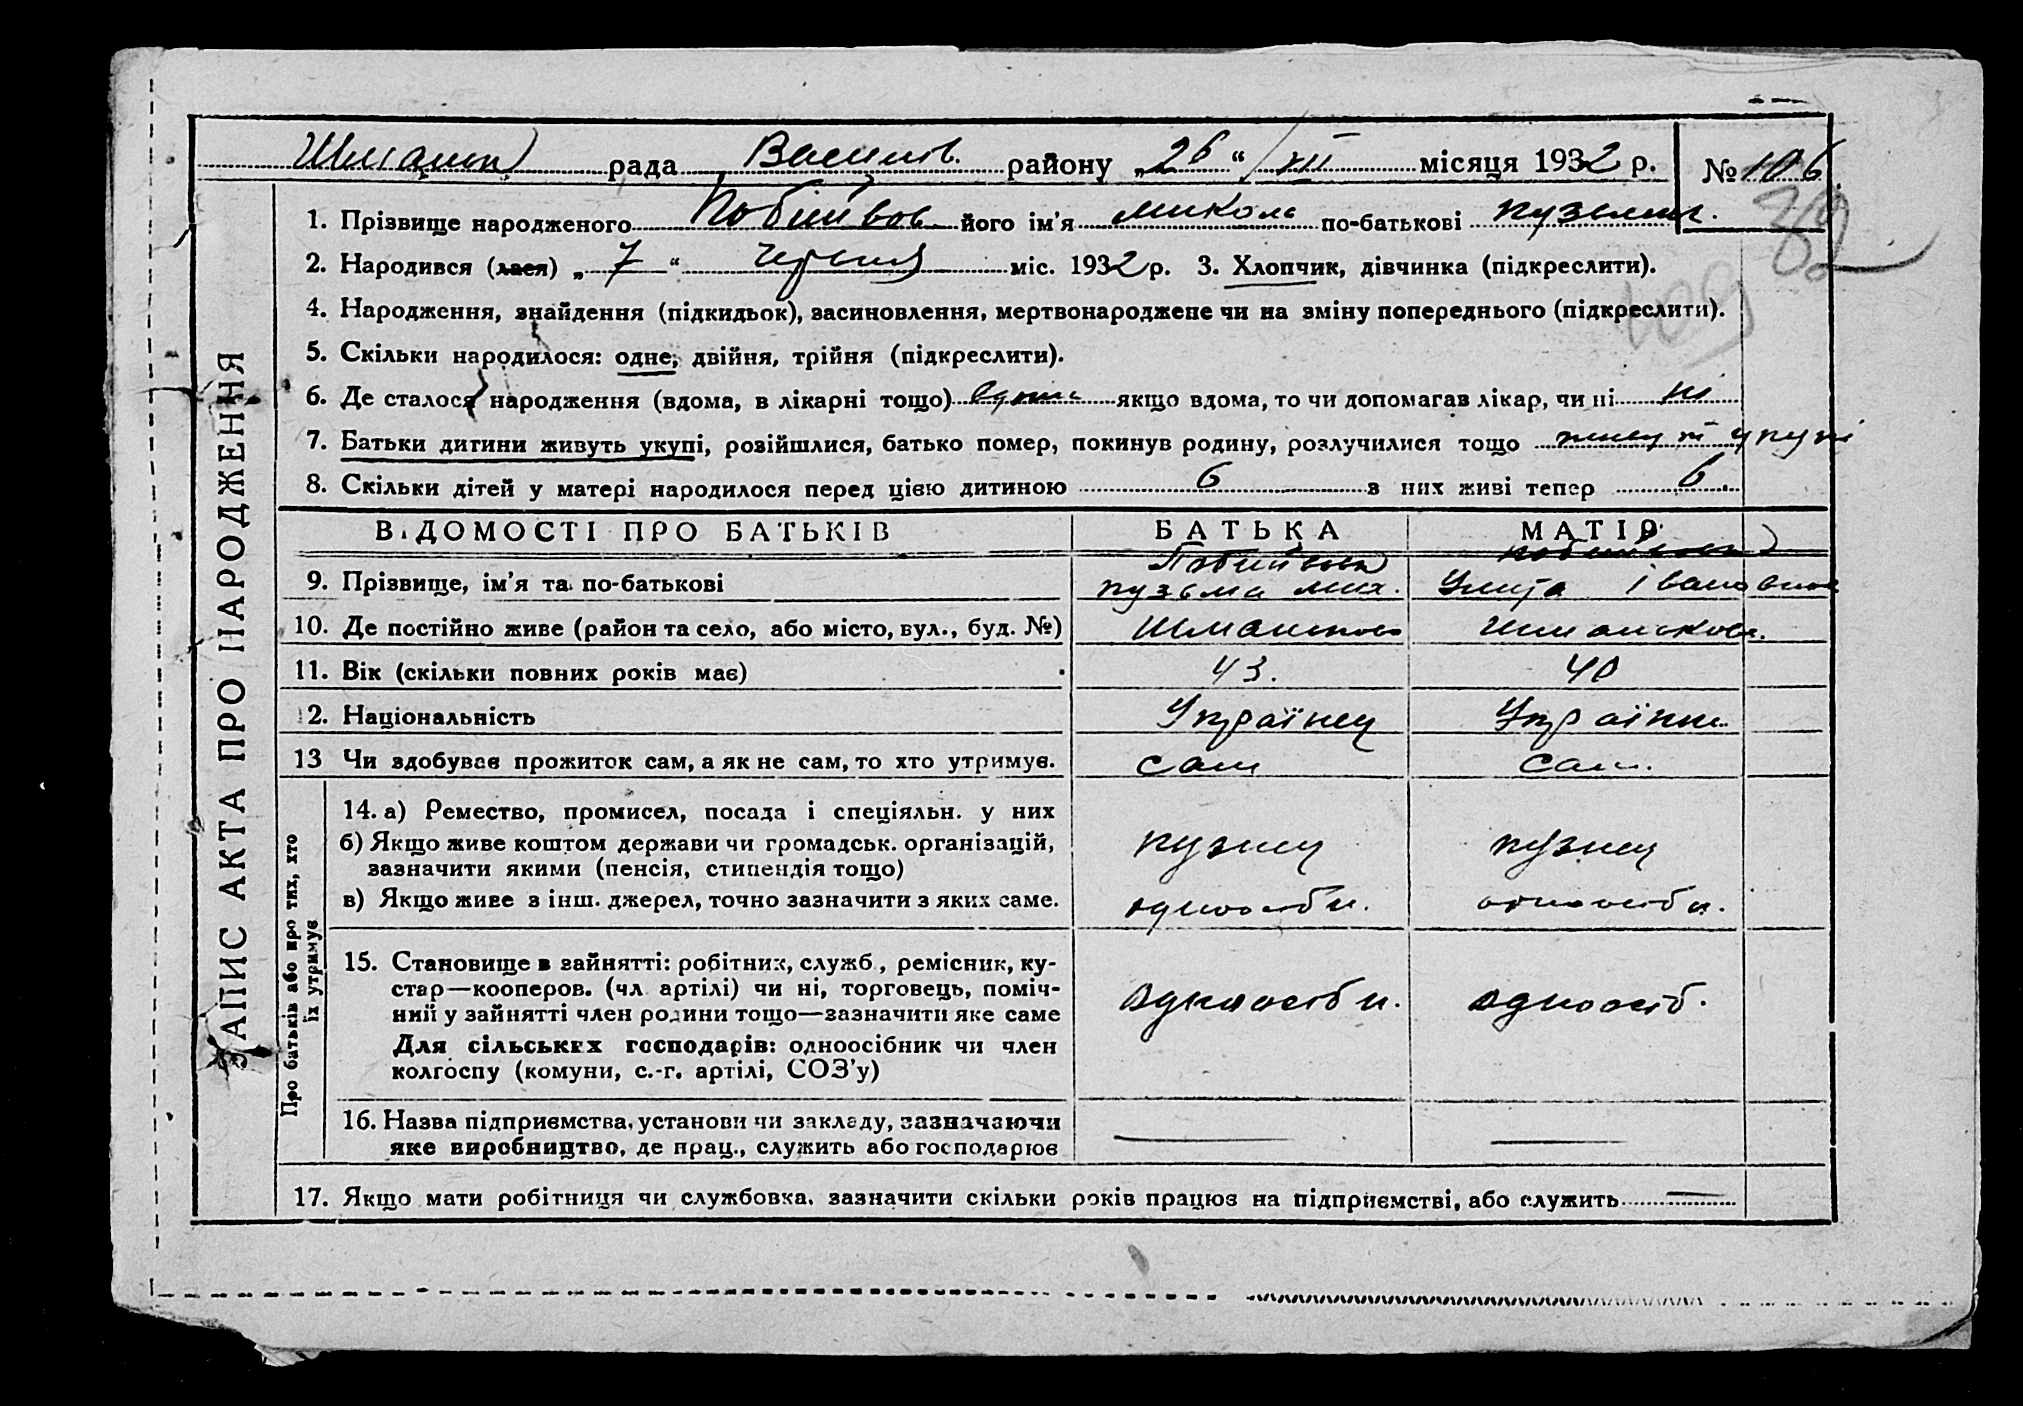 рада Василів. району „26“ XII місяця 1932 р. № 106
39
109
1. Прізвище народженого його ім’я Микола по-батькові Кузьмич.
2. Народився (лася) „7“ червня міс. 1932 р. 3. Хлопчик, дівчинка (підкреслити).
4. Народження, знайдення (підкидьок), засиновлення, мертвонароджене чи на зміну попереднього (підкреслити).
5. Скільки народилося: одне, двійня, трійня (підкреслити).
6. Де сталося народження (вдома, в лікарні тощо) вдома якщо вдома, то чи допомагав лікар, чи ні ні
7. Батьки дитини живуть укупі, розійшлися, батько помер, покинув родину, розлучилися тощо живут укупі
8. Скільки дітей у матері народилося перед цією дитиною 6 з них живі тепер 6.
ЗАПИС АКТА ПРО НАРОДЖЕННЯ
ВІДОМОСТІ ПРО БАТЬКІВ БАТЬКА МАТІР
9. Прізвище, ім’я та по-батькові Кузьма Мих. Улита Івановна
10. Де постійно живе (район та село, або місто, вул., буд. №)
11. Вік (скільки повних років має) 43. 40
12. Національність Українец Українк.
13 Чи здобував прожиток сам, а як не сам, то хто утримує. сам сам.
Про батьків або про тих, хто їх утримує
14. а) Ремество, промисел, посада і спеціяльн. у них
б) Якщо живе коштом держави чи громадськ. організацій,
зазначити якими (пенсія, стипендія тощо) кузнец кузнец
в) Якщо живе з інш. джерел, точно зазначити з яких саме. одноосібн. одноосібн.
15. Становище в зайнятті: робітник, служб., ремісник, ку-
стар—кооперов. (чл. артілі) чи ні, торговець, поміч-
ний у зайнятті член родини тощо—зазначити яке саме одноосібн. одноосіб.
Для сільських господарів: одноосібник чи член
колгоспу (комуни, с.-г. артілі, СОЗ’у)
16. Назва підприємства, установи чи закладу, зазначаючи
яке виробництво, де прац., служить або господарює — —
17. Якщо мати робітниця чи службовка, зазначити скільки років працює на підприємстві, або служить —